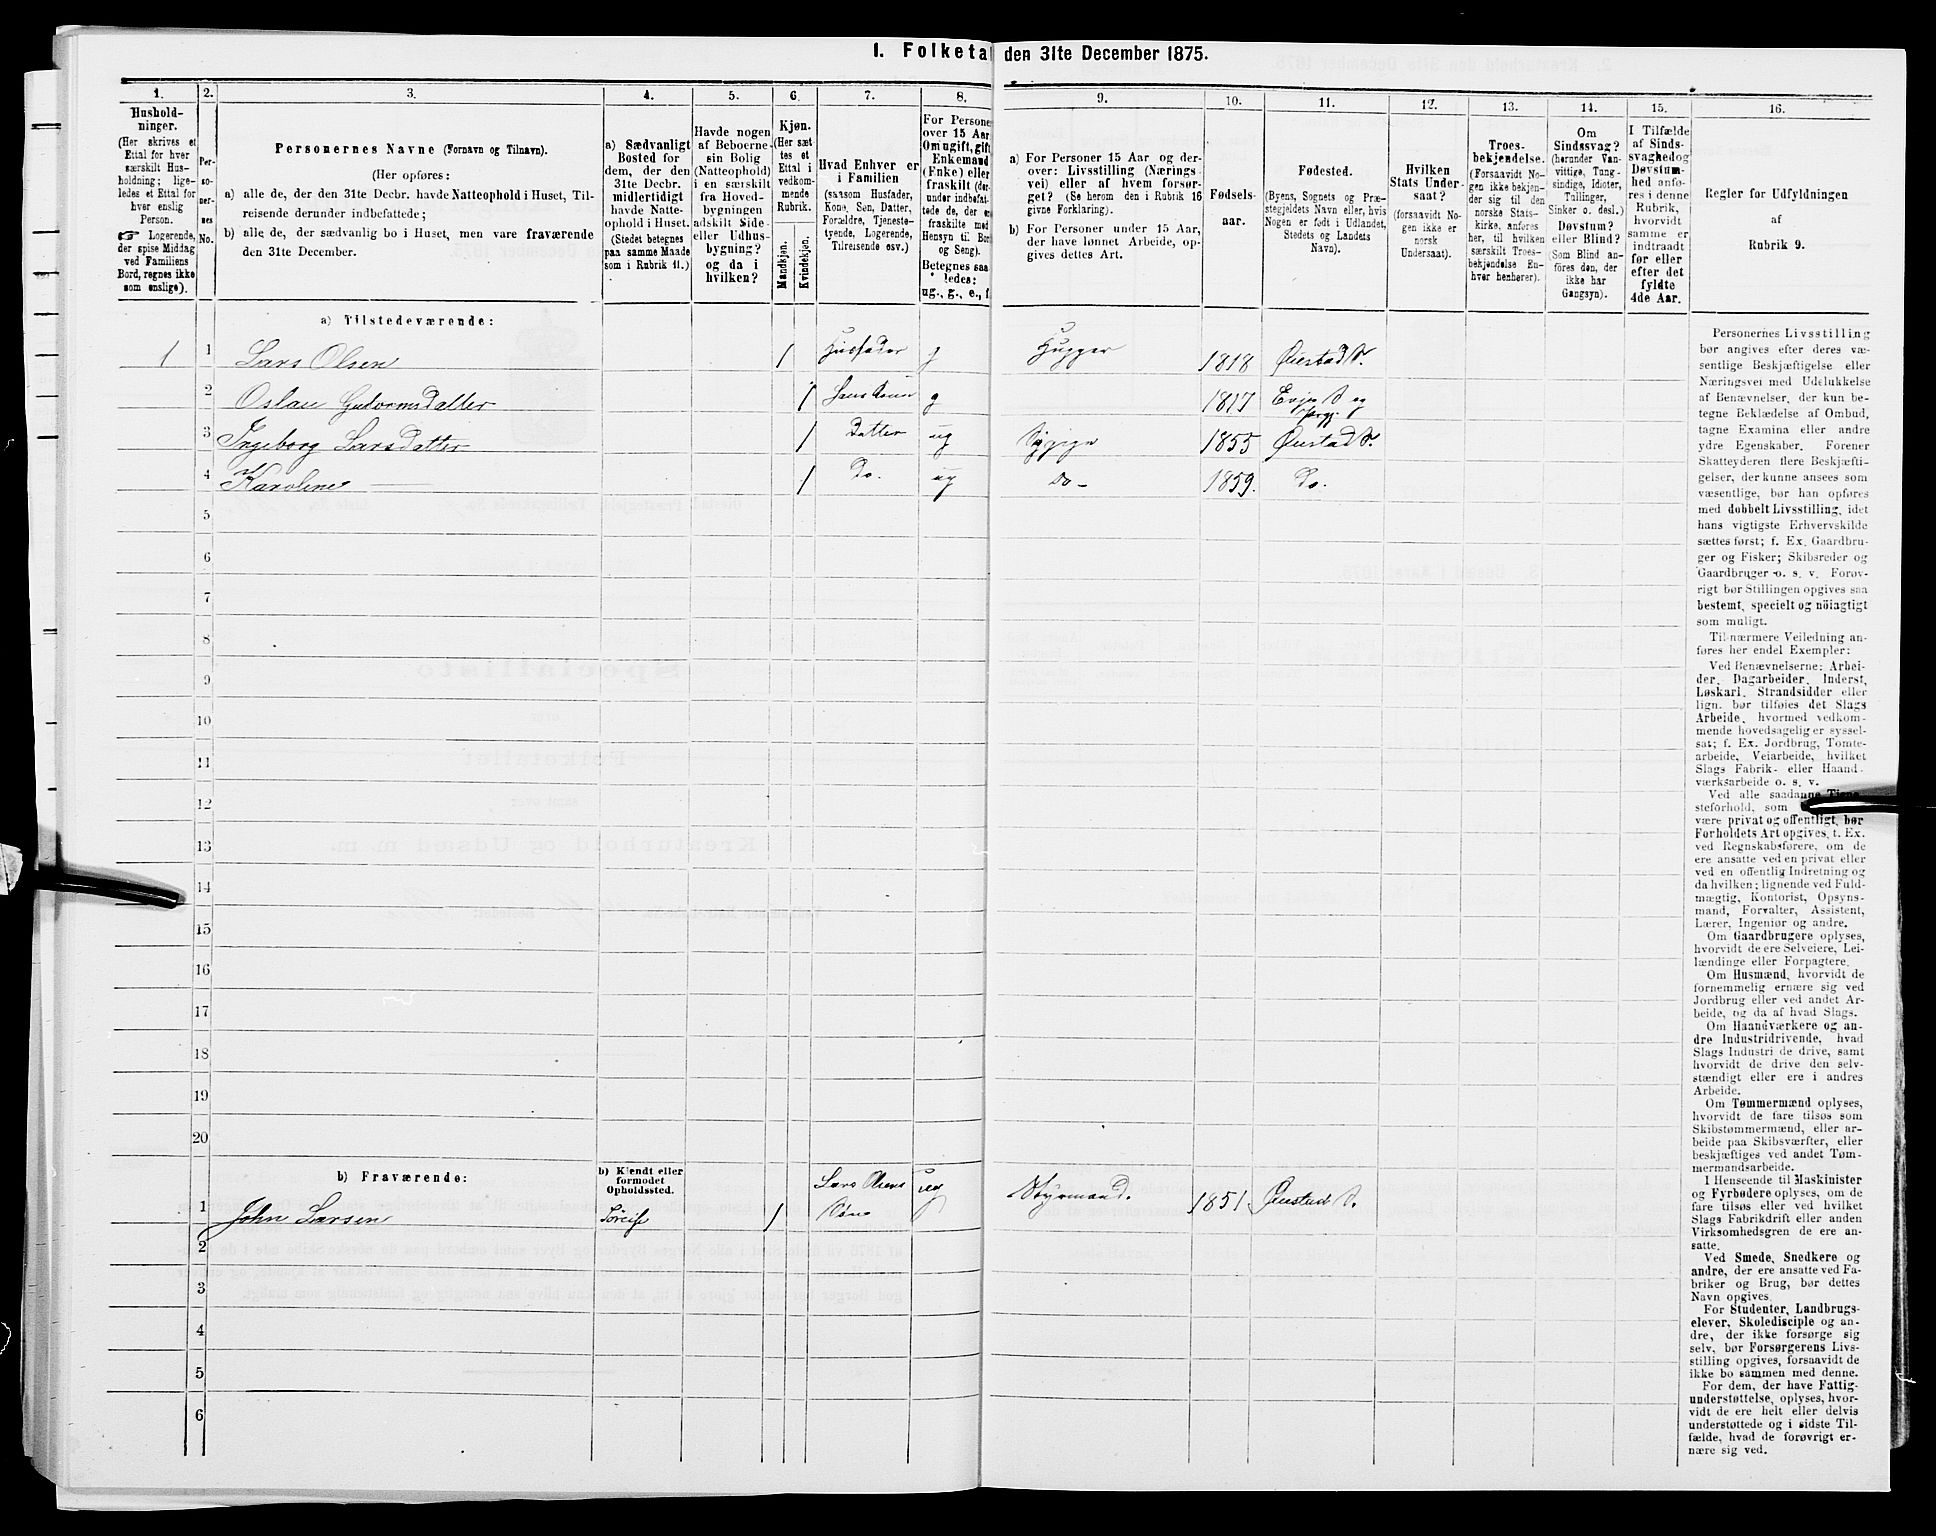 I. Folketal den 31te December 1875.
1.
Hushold-
ninger.
(Her skrives et
Ettal for hver
særskilt Hus-
holdning; lige-
ledes et Ettal for
hver enslig
Person.
☞ Logerende,
der spise Middag
ved Familiens
Bord, regnes ikke
som enslige).
2.
Per-
so-
ner-
nes
No.
3.
Personernes Navne (Fornavn og Tilnavn).
(Her opføres:
a) alle de, der den 31te Decbr. havde Natteophold i Huset, Til-
reisende derunder indbefattede;
b) alle de, der sædvanlig bo i Huset, men vare fraværende
den 31te December.
4.
a) Sædvanligt
Bosted for
dem, der den
31te Decbr.
midlertidigt
havde Natte-
ophold i Huset.
(Stedet betegnes
paa samme Maade
som i Rubrik 11.)
5.
Havde nogen
af Beboerne
sin Bolig
(Natteophold)
i en særskilt
fra Hoved-
bygningen
adskilt Side-
eller Udhus-
bygning?
og da i
hvilken?
6.
Kjøn.
(Her sæt-
tes et
Ettal i
vedkom-
mende
Rubrik.
Mandkjøn.
Kvindekjøn.
7.
Hvad Enhver er
i Familien
(saasom Husfader,
Kone, Søn, Datter,
Forældre, Tjeneste-
tyende, Logerende,
Tilreisende osv.)
8.
For Personer
over 15 Aar
Om ugift, gift
Enkemand
(Enke) eller
fraskilt (der-
under indbefat-
tede de, der er
fraskilte med
Hensyn til Bord
og Seng).
Betegnes saa-
ledes:
ug., g., e., f.
9.
a) For Personer 15 Aar og der-
over: Livsstilling (Nærings-
vei) eller af hvem forsør-
get? (Se herom den i Rubrik 16
givne Forklaring).
b) For Personer under 15 Aar,
der have lønnet Arbeide, op-
gives dettes Art.
10.
Fødsels-
aar.
11.
Fødested.
(Byens, Sognets og Præ-
stegjeldets Navn eller, hvis
Nogen er født i Udlandet,
Stedets og Landets
Navn).
12.
Hvilken
Stats Under-
saat?
(forsaavidt No-
gen ikke er
norsk
Undersaat).
13.
Troes-
bekjendelse.
(Forsaavidt No-
gen ikke bekjen-
der sig til den
norske Stats-
kirke, anføres
her, til hvilken
særskilt Troes-
bekjendelse En-
hver henhører).
14.
Om
Sindssvag?
(herunder Van-
vittige, Tung-
sindige, Idioter,
Tullinger,
Sinker o. desl.)
Døvstum?
eller Blind?
(Som Blind an-
føres den, der
ikke har
Gangsyn).
15.
I Tilfælde
af Sinds-
svaghed og
Døvstum-
hed anfø-
res i denne
Rubrik,
hvorvidt
samme er
indtraadt
før eller
efter det
fyldte
4de Aar.
16.
Regler for Udfyldningen
af
Rubrik 9.
a) Tilstedeværende:
1 1 Lars Olsen 1 Husfader g Hugger 1818 Øiestad S.
2 Oslau GutormsDatter 1 hans Kone g 1817 Evje S og
Prgj.
3 Ingeborg LarsDatter 1 Datter ug Sypige 1855 Øiestad S.
4 Karoline — 1 Do. ug Do - 1859. Do.
5
6
7
8
9
10
11
12
13
14
15
16
17
18
19
20
b) Fraværende:
b) Kjendt eller
formodet
Opholdssted.
1 John Larsen 1 Lars Olsens
Søn ug Styrmand. 1851 Øiestad S.
2
3
4
5
6
Personernes Livsstilling
bør angives efter deres væ-
sentlige Beskjæftigelse eller
Næringsvei med Udelukkelse
af Benævnelser, der kun be-
tegne Beklædelse af Ombud,
tagne Examina eller andre
ydre Egenskaber. Forener
Skatteyderen flere Beskjæfti-
gelser, der kunne ansees som
væsentlige, bør han opføres
med dobbelt Livsstilling, idet
hans vigtigste Erhvervskilde
sættes først; f. Ex. Gaardbru-
ger og Fisker; Skibsreder og
Gaardbruger o. s. v. Forøv-
rigt bør Stillingen opgives saa
bestemt, specielt og nöiagtigt
som muligt.
Til nærmere Veiledning an-
føres her endel Exempler:
Ved Benævnelserne: Arbei-
der, Dagarbeider, Inderst,
Løskarl, Strandsidder eller
lign. bør tilføies det Slags
Arbeide, hvormed vedkom-
mende hovedsagelig er syssel-
sat; f. Ex. Jordbrug, Tomte-
arbeide, Veiarbeide, hvilket
Slags Fabrik- eller Haand-
værksarbeide o. s. v.
Ved alle saadanne Tjene-
steforhold, som
være privat og offentligt, bør
Forholdets Art opgives, t. Ex.
ved Regnskabsførere, om de
ere ansatte ved en privat eller
ved en offentlig Indretning og
da hvilken; lignende ved Fuld-
mægtig, Kontorist, Opsyns-
mand, Forvalter, Assistent,
Lærer, Ingeniør og andre.
Om Gaardbrugere oplyses,
hvorvidt de ere Selveiere, Lei-
lændinge eller Forpagtere.
Om Husmænd, hvorvidt de
fornemmelig ernære sig ved
Jordbrug eller ved andet Ar-
beide, og da af hvad Slags.
Om Haandværkere og an-
dre Industridrivende, hvad
Slags Industri de drive, samt
hvorvidt de drive den selv-
stændigt eller ere i andres
Arbeide.
Om Tømmermænd oplyses,
hvorvidt de fare tilsøs som
Skibstømmermænd, eller ar-
beide paa Skibsværfter, eller
beskjæftiges ved andet Tøm-
mermandsarbeide.
I Henseende til Maskinister
og Fyrbødere oplyses, om de
fare tilsøs eller ved hvilket
Slags Fabrikdrift eller anden
Virksomhedsgren de ere an-
satte.
Ved Smede, Snedkere og
andre, der ere ansatte ved Fa-
briker og Brug, bør dettes
Navn opgives.
For Studenter, Landbrugs-
elever, Skoledisciple og an-
dre, der ikke forsørge sig
selv, bør Forsørgerens Livs-
stilling opgives, forsaavidt de
ikke bo sammen med denne.
For dem, der have Fattig-
understøttelse, oplyses, hvor-
vidt de ere helt eller delvis
understøttede og i sidste Til-
fælde, hvad de forøvrigt er-
nære sig ved.